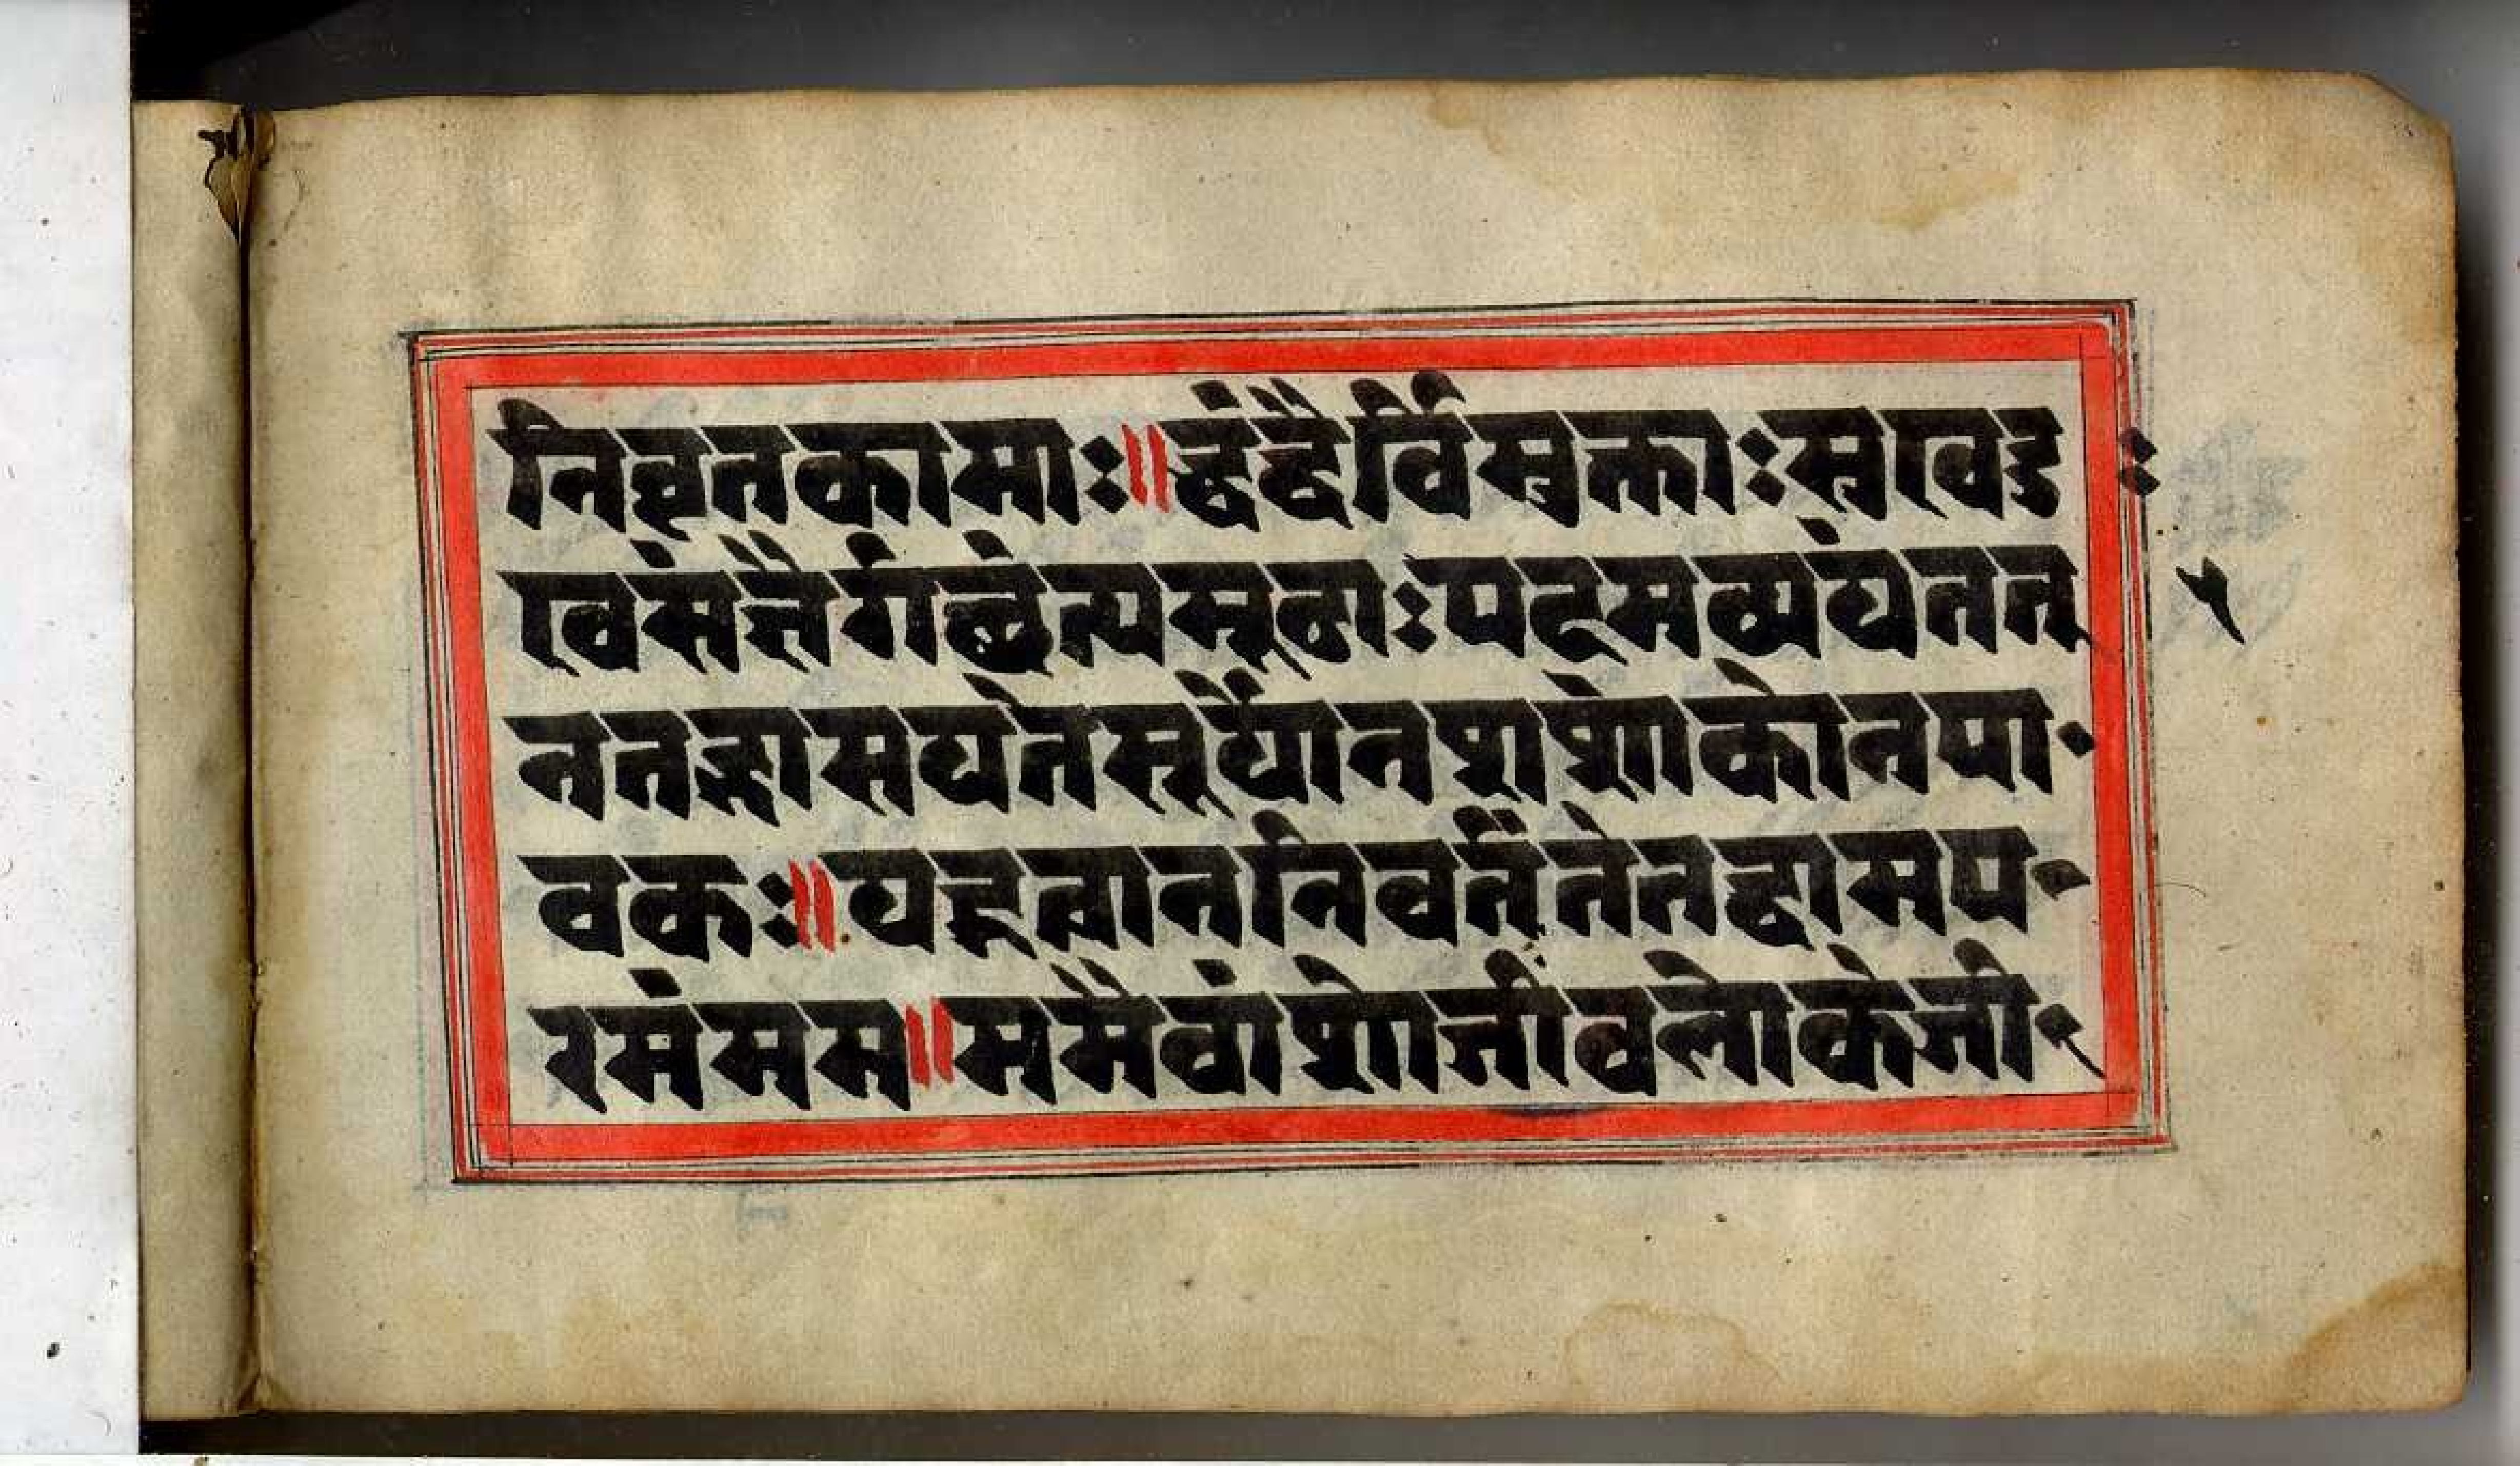 निवृतकामाः॥द्वंद्वैर्विमुक्ताः सुखदुः
खसंज्ञैर्गच्छंत्यमूढाः पदमव्ययं तत्
न तद्भासयते सूर्यो न शशांको न पा
वकः॥यद्गत्वा न निवर्तंते तद्धाम प
रमं मम॥ममैवांशो जीवलोके जी